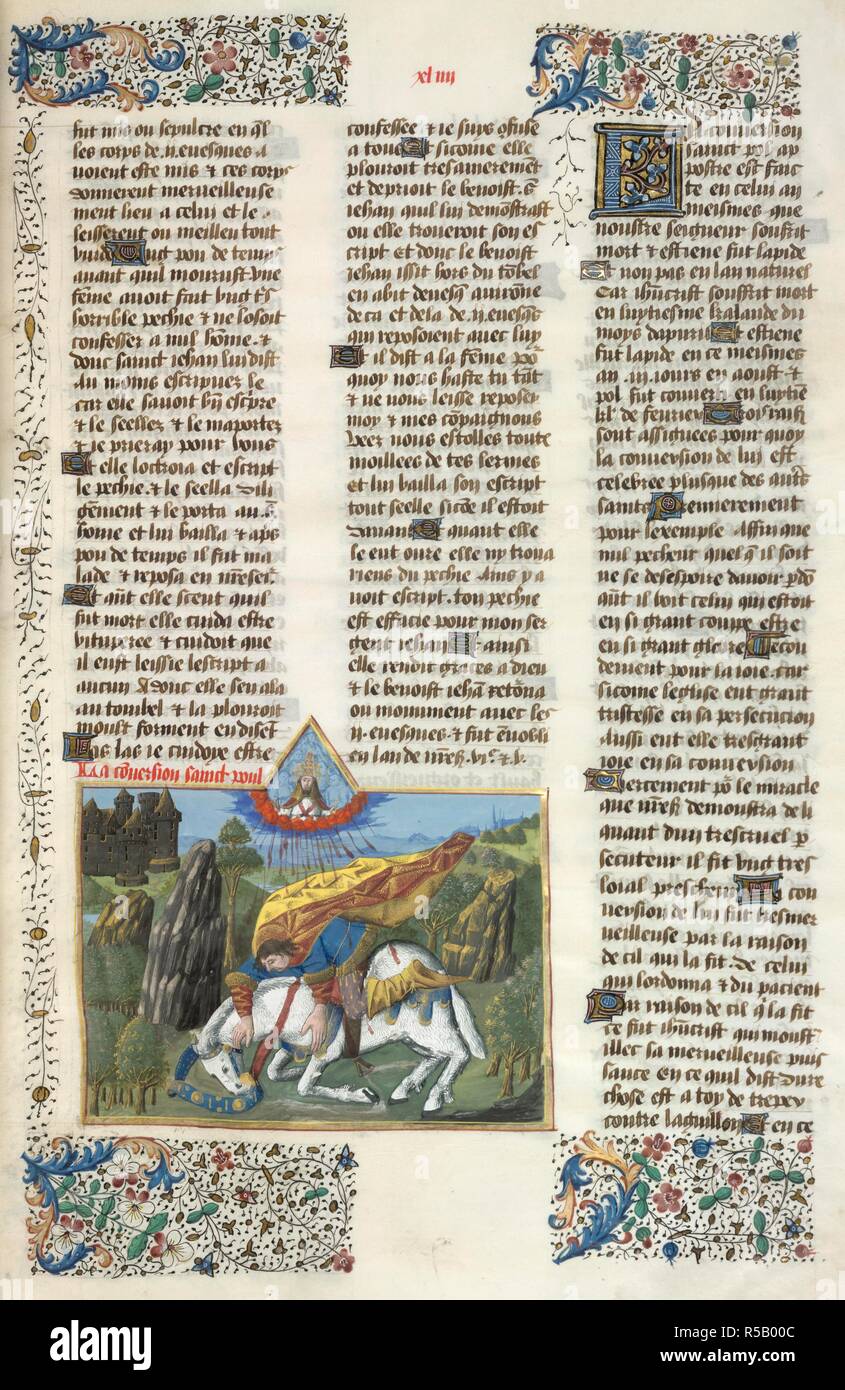 xl iiii
fut mis ou sepulcre en ql
les corps de .ii. evesques a
voient este mis & ces corps
donnerent merveilleuse
ment lieu a celui et le
leisserent ou meilleu tout
vuide Ung pou de temps
avant quil mourust une
feme avoit fait ung trs
horrible pechie & ne losoit
confesser a nul home . &
donc sainct iehan lui dist
Au moins escripvez le
car elle savoit bn escpre
& le seellez & le maportez
& ie prieray pour vous
Et elle loctroia et escript
le pechie . & le seella dili
gement & le porta au .s.
home et lui bailla & aps
pou de temps il fut ma
lade & reposa en nreseigr
Et qnt elle sceut quil
fut mort elle cuida estre
vituperee & cuidoit que
il eust leissie lescript a
aucun Adonc elle sen ala
au tombel & la plouroit
moult forment en disent
Las las ie cuidoye estre
La coversion sainct poul
confessee & ie suys cfuse
a tous Et sicome elle
plouroit tresamerement
et deprioit le benoist .s.
iehan quil lui demostrast
ou elle trouveroit son es
cript Et donc le benoist
iehan issit hors du tobel
en abit devesq avirone
de ca et de la de .ii. evesqs
qui reposoient avec luy
Et il dist a la feme por
quoy nous haste tu tat
& ne nous leisse reposer
moy & mes copaignons
veez nous estolles toute
moillees de tes lermes
Et lui bailla son escript
tout seelle sicoe il estoit
devant Et quant elle
le eut ouvre elle ny trova
riens du pechie Ains y a
voit escript . ton pechie
est efficie pour mon ser
gent iehan Et ainsi
elle rendit graces a dieu
& le benoist iehan retorna
ou monument avec les
.ii. evesques & fut envobli
en lan de nres .vic. & v.
La conversion
sainct pol ap
postre est faic
te en celui an
meismes que
noustre seigneur souffrit
mort & estiene fut lapide
Et non pas en lan naturel
Car ihucrist souffrit mort
en luytiesme kalande du
moys dapuril Et estiene
fut lapide en ce meismes
an .iii. iours en aoust . &
pol fut converti en luytiem
kl' de feurier Trois raiss
sont assignees pour quoy
la conversion de lui est
celebree plusque des autrs
saints Premierement
pour lexemple Affin que
nul pecheur quel q il soit
ne se desespoire davoir pdo
qnt il voit celui qui estoit
en si grant coupe estre
en si grant gloire Secon
dement pour la ioie . car
sicome leglise eut grant
tristesse en sa persecucion
Aussi eut elle tresgrant
ioie en sa conversion
Tiercement por le miracle
que nres demoustra de li
quant dun trescruel p
secuteur il fit ung tres
loial prescheur La con
version de lui fut besmer
veilleuse par la raison
de cil qui la fit . De celui
qui lordonna & du pacient
Par raison de cil q la fit
ce fut ihucrist qui moust
illec sa merveilleuse puis
sance en ce quil dist dure
chose est a toy de trepey
contre laguillon Et en ce
alamy
Image ID: R5B00C
www.alamy.com